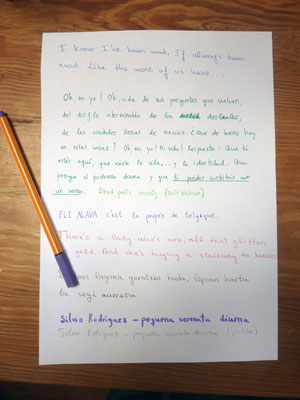 I know I've been mad, I've always been
mad, like the most of us have...
Oh, mi yo! Oh, vida de sus preguntas que vuelven,
del desfile interminable de los desleales,
de las ciudades llenas de necios ¿Que de bueno hay
en estas cosas? Oh, mi yo! ti vida! Respuesta: Que tú
estás aquí, que existe la vida... y la identidad. Que
prosigue el poderoso drama y que tú puedes contribuir con
un verso. Dead poets society (Walt Whitman)
ELI ALAVA c'est la poupée de Belgique.
There's a lady who's sure, all that glitters
gold. And she's buying a stairway to heaven
laguna geratzen bada, lepoan hartu
ta segi aurrera
Silvio Rodrigues - pequena serenata diurna
Silvio Rodriguez - pequeña serenata diurna